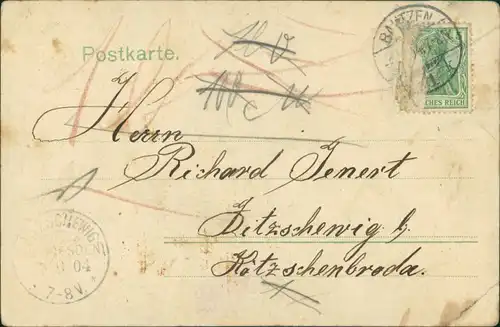 Postkarte.
BAUTZEN
CHES REICH
Herrn
Richard Jenert
Zitzschewig b/
Kötzschenbroda.
04
7-8V.